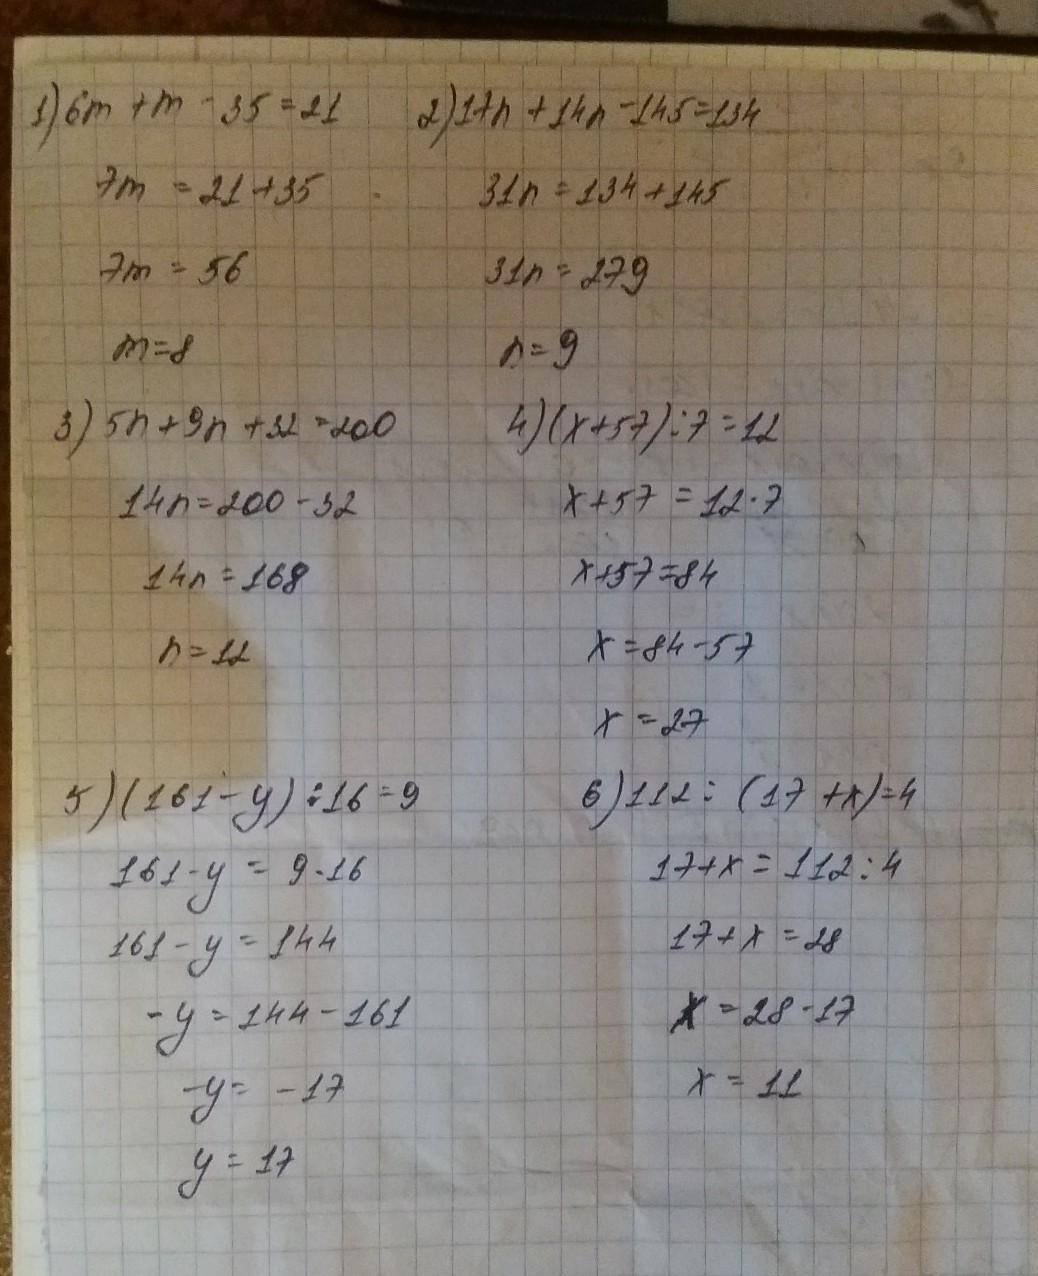 1) 6m + m - 35 = 21
7m = 21 + 35
7m = 56
m = 8
2) 17n + 14n - 145 = 134
31n = 134 + 145
31n = 279
n = 9
3) 5n + 9n + 32 = 200
14n = 200 - 32
14n = 168
n = 12
4) (x + 57) : 7 = 12
x + 57 = 12 · 7
x + 57 = 84
x = 84 - 57
x = 27
5) (161 - y) : 16 = 9
161 - y = 9 · 16
161 - y = 144
-y = 144 - 161
-y = -17
y = 17
6) 112 : (17 + x) = 4
17 + x = 112 : 4
17 + x = 28
x = 28 - 17
x = 11